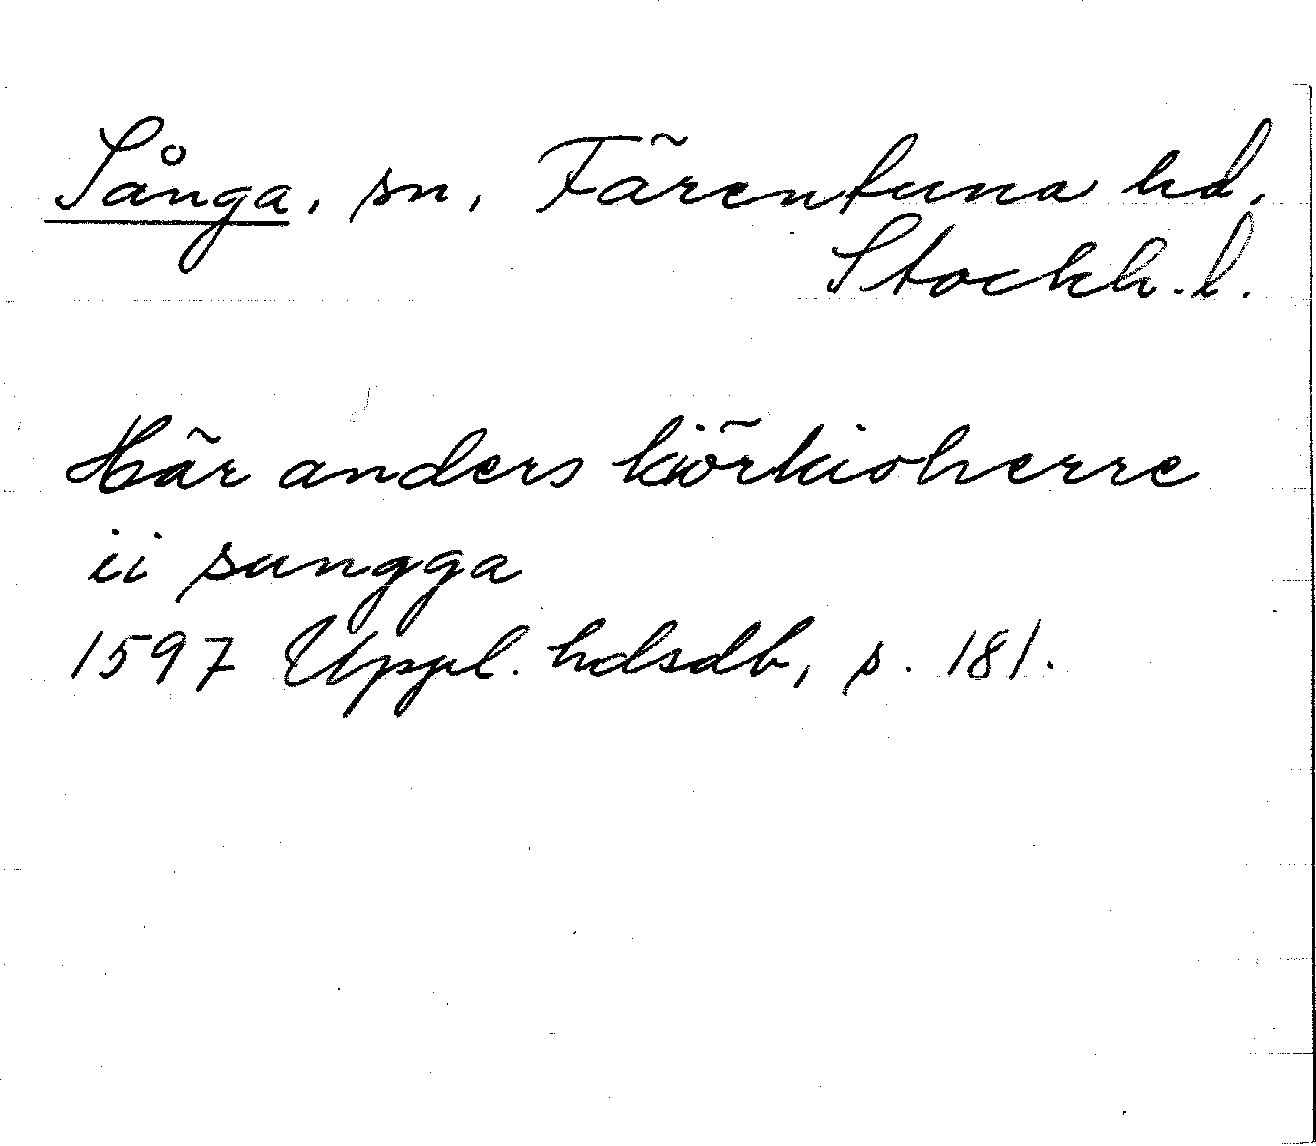 Sånga, sn, Färentuna hd,
Stockh. l.
Här anders kiörkioherre
ii sungga
1597 Uppl. hdsdb, s. 181.